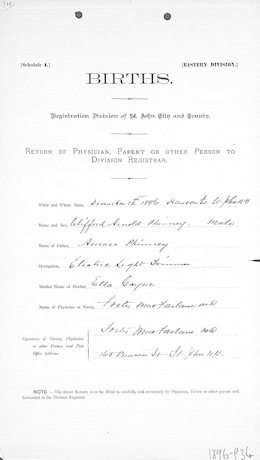 [Schedule A.] [EASTERN DIVISION.]
BIRTHS.
Registration Division of St. John City and County.
RETURN OF PHYSICIAN, PARENT OR OTHER PERSON TO
DIVISION REGISTRAR.
When and Where Born, December 12th 1896 St John NB
Name and Sex, Clifford Arnold Male
Name of Father, Amasa
Occupation, Electric Light Trimmer
Maiden Name of Mother, Ella
Name of Physician or Nurse, Foster MacFarlane MD
Foster MacFarlane MD
Signature of Parent, Physician
or other Person, and Post
Office Address. 165 Princess St St John N.B.
NOTE.—The above Return is to be filled in carefully and accurately by Physician, Parent or other person and
forwarded to the Division Registrar
1896-P34